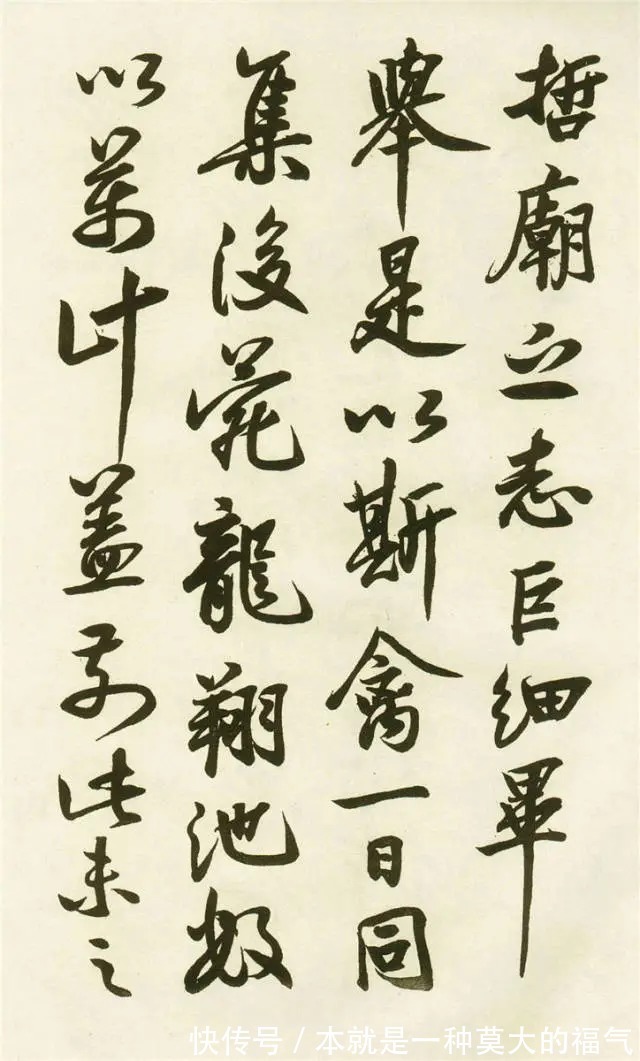 哲廟之志巨細畢
舉是以斯禽一日同
集後苑龍翔池數
以萬計蓋前此未之
快传号 / 本就是一种莫大的福气